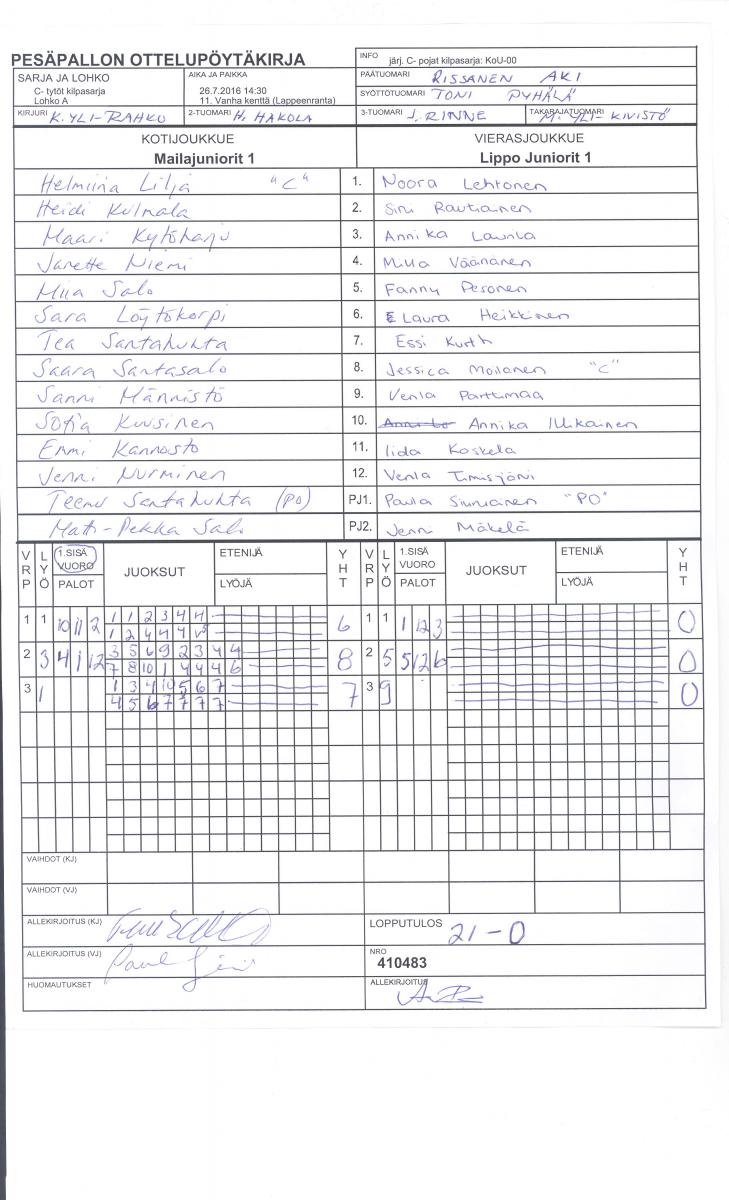 PESÄPALLON OTTELUPÖYTÄKIRJA
INFO järj. C- pojat kilpasarja: KoU-00
SARJA JA LOHKO
C- tytöt kilpasarja
Lohko A
AIKA JA PAIKKA
26.7.2016 14:30
11. Vanha kenttä (Lappeenranta)
PÄÄTUOMARI RISSANEN AKI
SYÖTTÖTUOMARI TONI PYHÄLÄ
KIRJURI K. YLI-RAHKO
2-TUOMARI H. HAKOLA
3-TUOMARI J. RINNE
TAKARAJATUOMARI M. YLI-KIVISTÖ
KOTIJOUKKUE
Mailajuniorit 1
VIERASJOUKKUE
Lippo Juniorit 1
Helmiina Lilja "C" 1. Noora Lehtonen
Heidi Kulmala 2. Sini Rautiainen
Maari Kytöharju 3. Annika Launla
Janette Niemi 4. Milla Väänänen
Miia Salo 5. Fanny Pesonen
Sara Löytökorpi 6. Laura Heikkinen
Tea Santahuhta 7. Essi Kurth
Saara Santasalo 8. Jessica Moilanen "C"
Sanni Männistö 9. Venla Parttimaa
Sofia Kuusinen 10. Annika Illikainen
Emmi Kannosto 11. Iida Koskela
Jenni Nurminen 12. Venla
Teemu Santahuhta (PO) PJ1. Paula "PO"
Mati-Pekka Salo PJ2. Jenni Mäkelä
VRP LYÖ 1.SISÄ VUORO PALOT JUOKSUT ETENIJÄ LYÖJÄ YHT VRP LYÖ 1.SISÄ VUORO PALOT JUOKSUT ETENIJÄ LYÖJÄ YHT
1 1 10 11 2 1 1 2 3 4 4 6 1 1 1 12 3 0
1 2 4 4 4
2 3 4 1 12 3 5 6 9 2 3 4 4 8 2 5 5 12 6 0
7 8 10 1 4 4 4 6
3 1 1 3 4 10 5 6 7 7 3 9 0
4 5 6 7 7 7 7
VAIHDOT (KJ)
VAIHDOT (VJ)
ALLEKIRJOITUS (KJ)
LOPPUTULOS 21-0
ALLEKIRJOITUS (VJ)
NRO
410483
HUOMAUTUKSET
ALLEKIRJOITUS